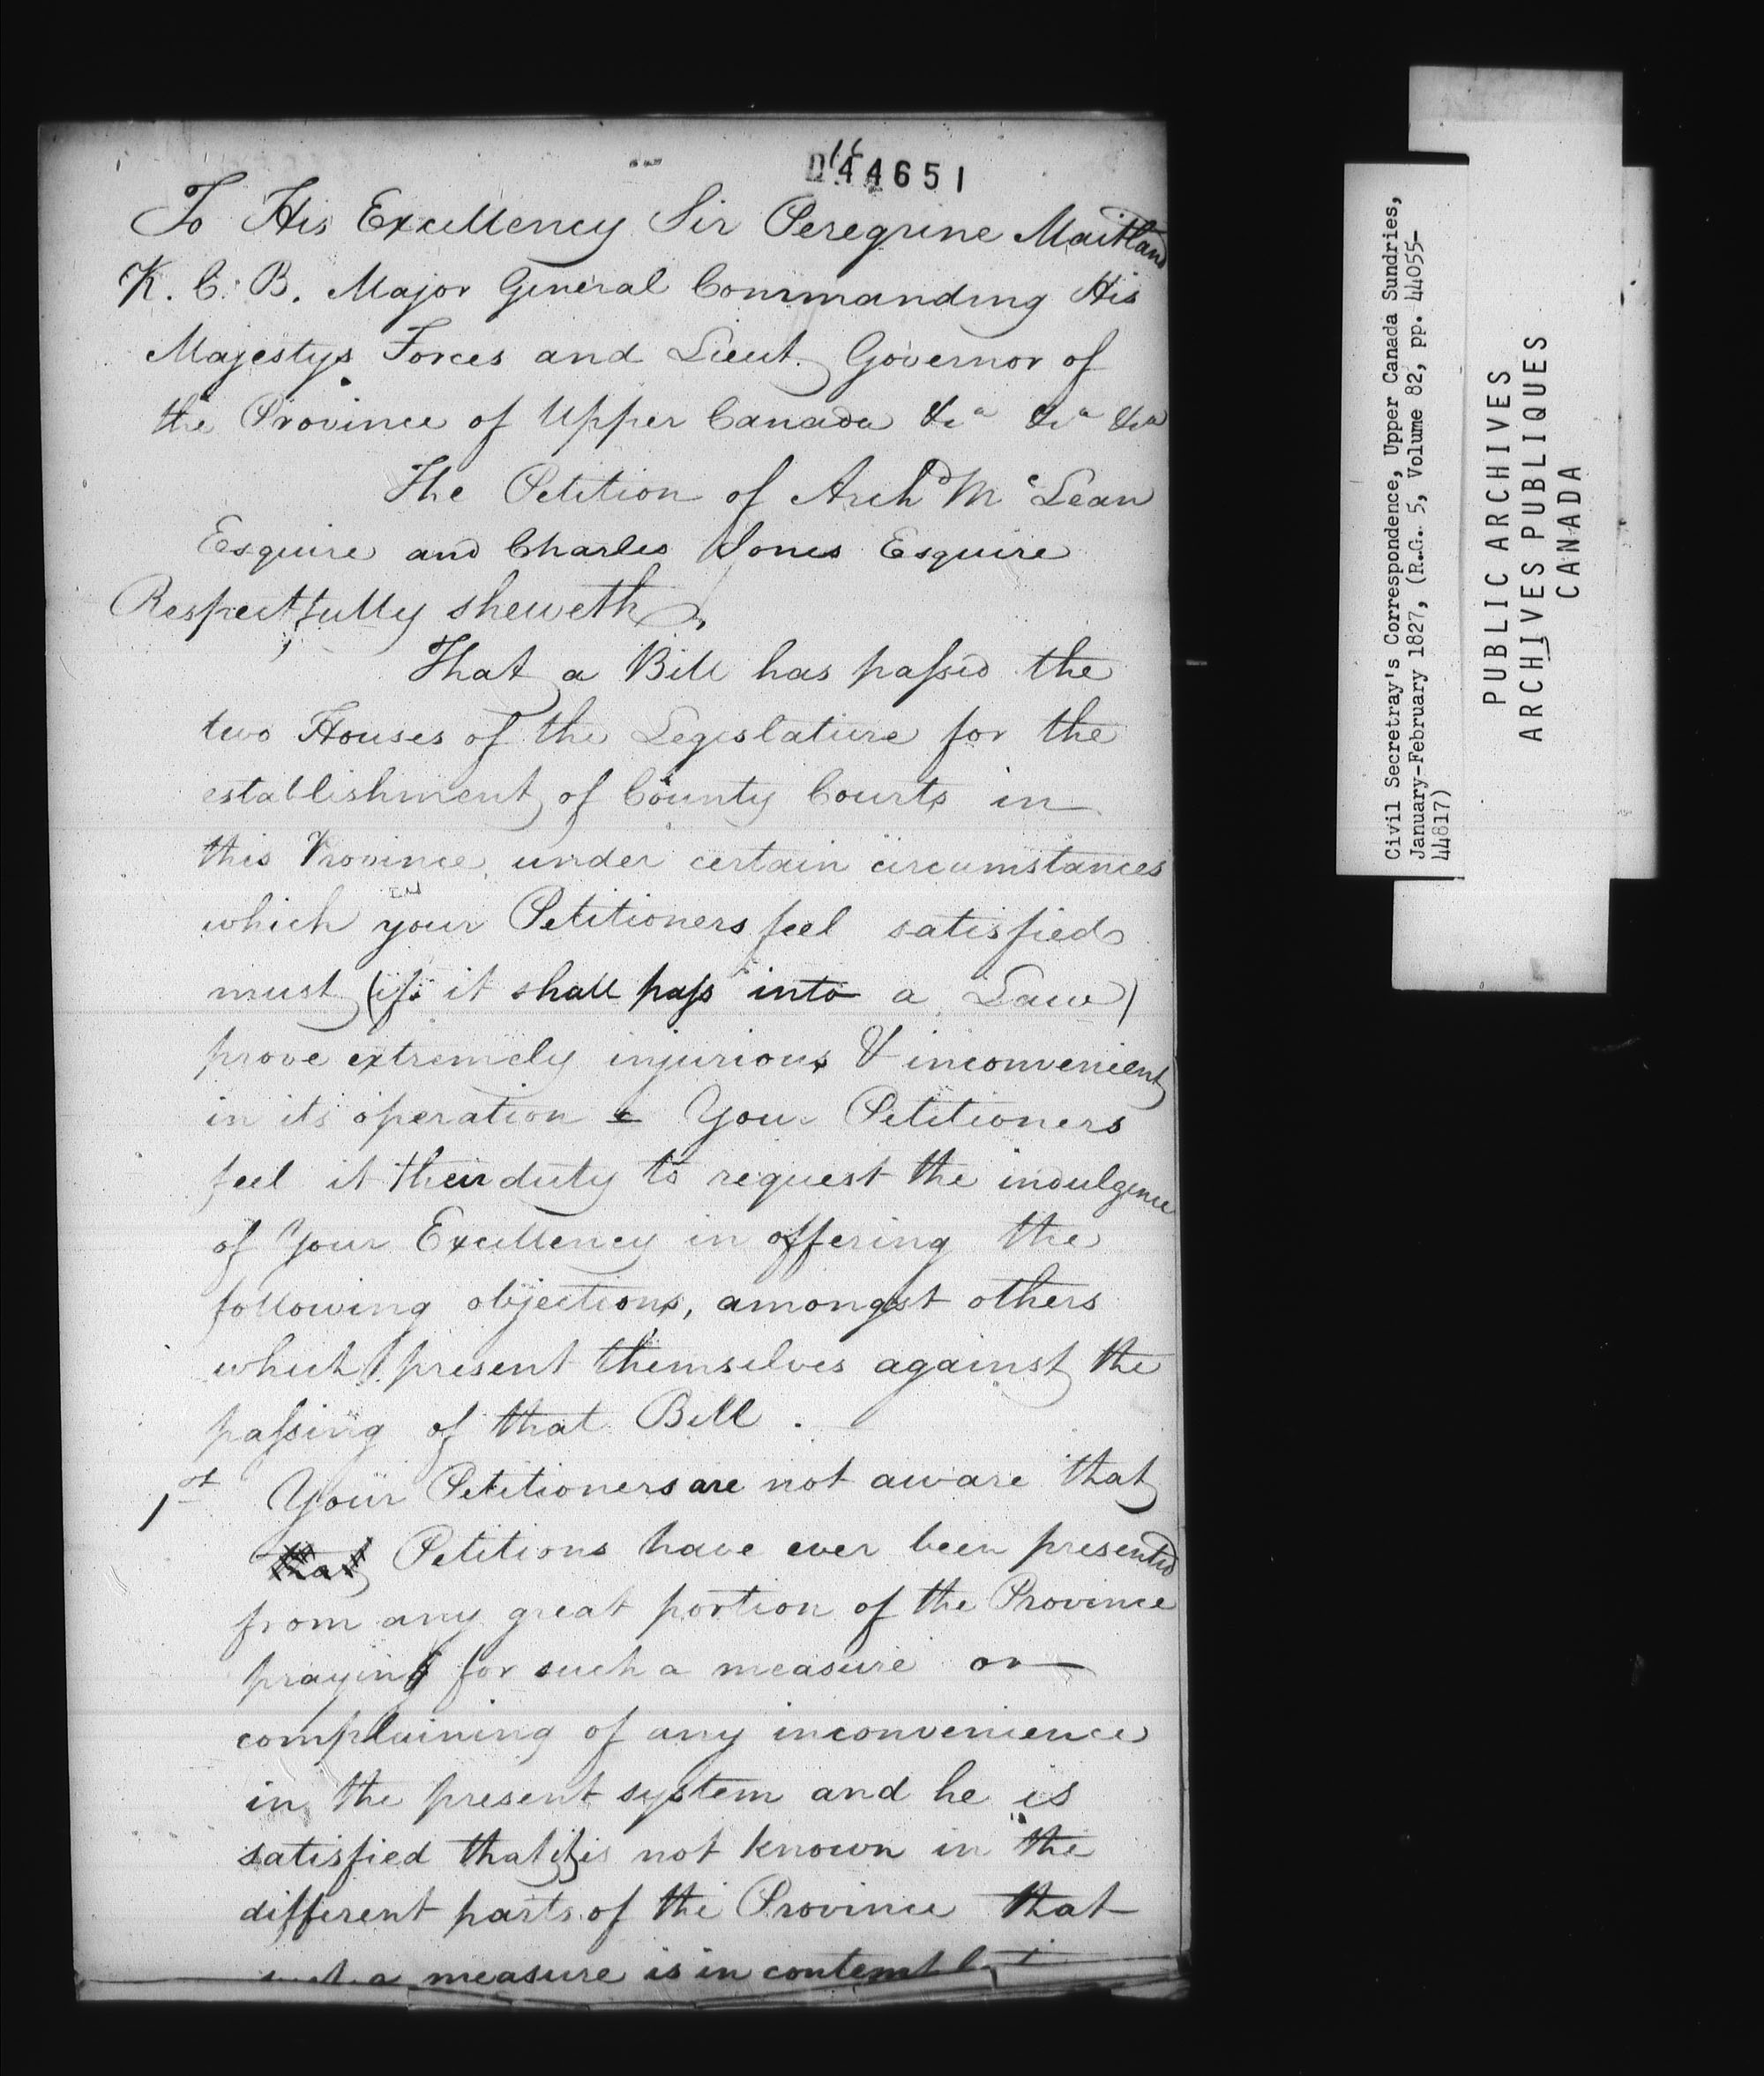 044651
To His Excellency Sir Peregrine Maitland
K. C. B. Major General Commanding His
Majestys Forces and Lieut. Governor of
the Province of Upper Canada &ca &ca &ca
The Petition of Archd McLean
Esquire and Charles Jones Esquire
Respectfully sheweth,
That a Bill has passed the
two Houses of the Legislature for the
establishment of County Courts in
this Province, under certain circumstances
which your Petitioners feel satisfied
must (if it shall pass into a Law)
prove extremely injurious & inconvenient
in its operation & Your Petitioners
feel it their duty to request the indulgence
of Your Excellency in offering the
following objections, amongst others
which present themselves against the
passing of that Bill.
1st Your Petitioners are not aware that
that Petitions have ever been presented
from any great portion of the Province
praying for such a measure or
complaining of any inconvenience
in the present system and he is
satisfied that it is not known in the
different parts of the Province that
such a measure is in
Civil Secretray's Correspondence, Upper Canada Sundries,
January-February 1827, (R.G. 5, Volume 82, pp. 44055-
44817)
PUBLIC ARCHIVES
ARCHIVES PUBLIQUES
CANADA